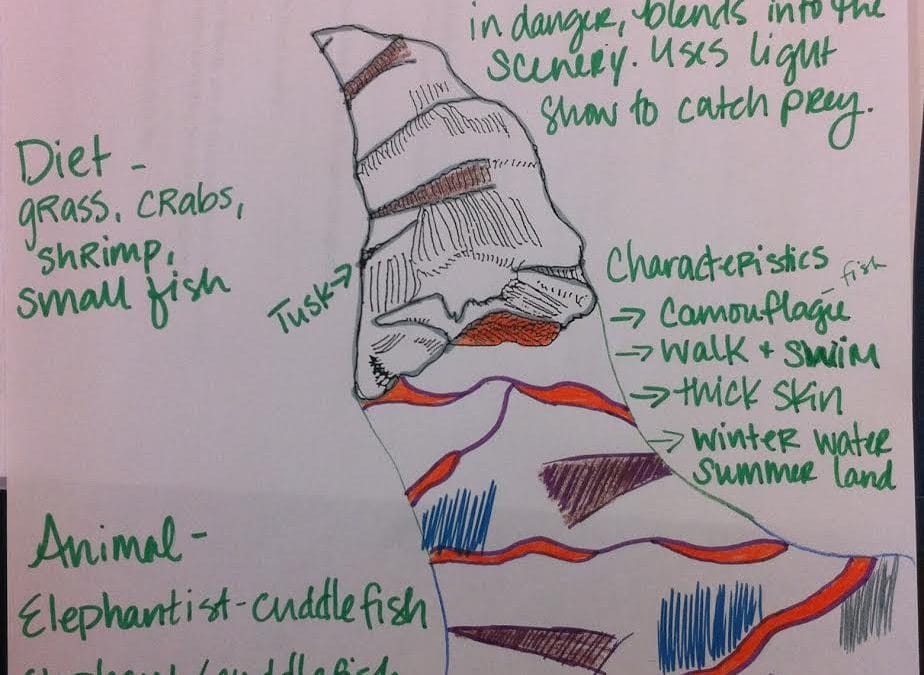 in danger, blends into the
scenery. Uses light
show to catch prey.
Diet -
grass, crabs,
shrimp,
small fish
Tusk→
Characteristics
- fish
→ Camouflague
→ walk + swim
→ thick skin
→ winter water
summer land
Animal -
Elephantist-cuddlefish